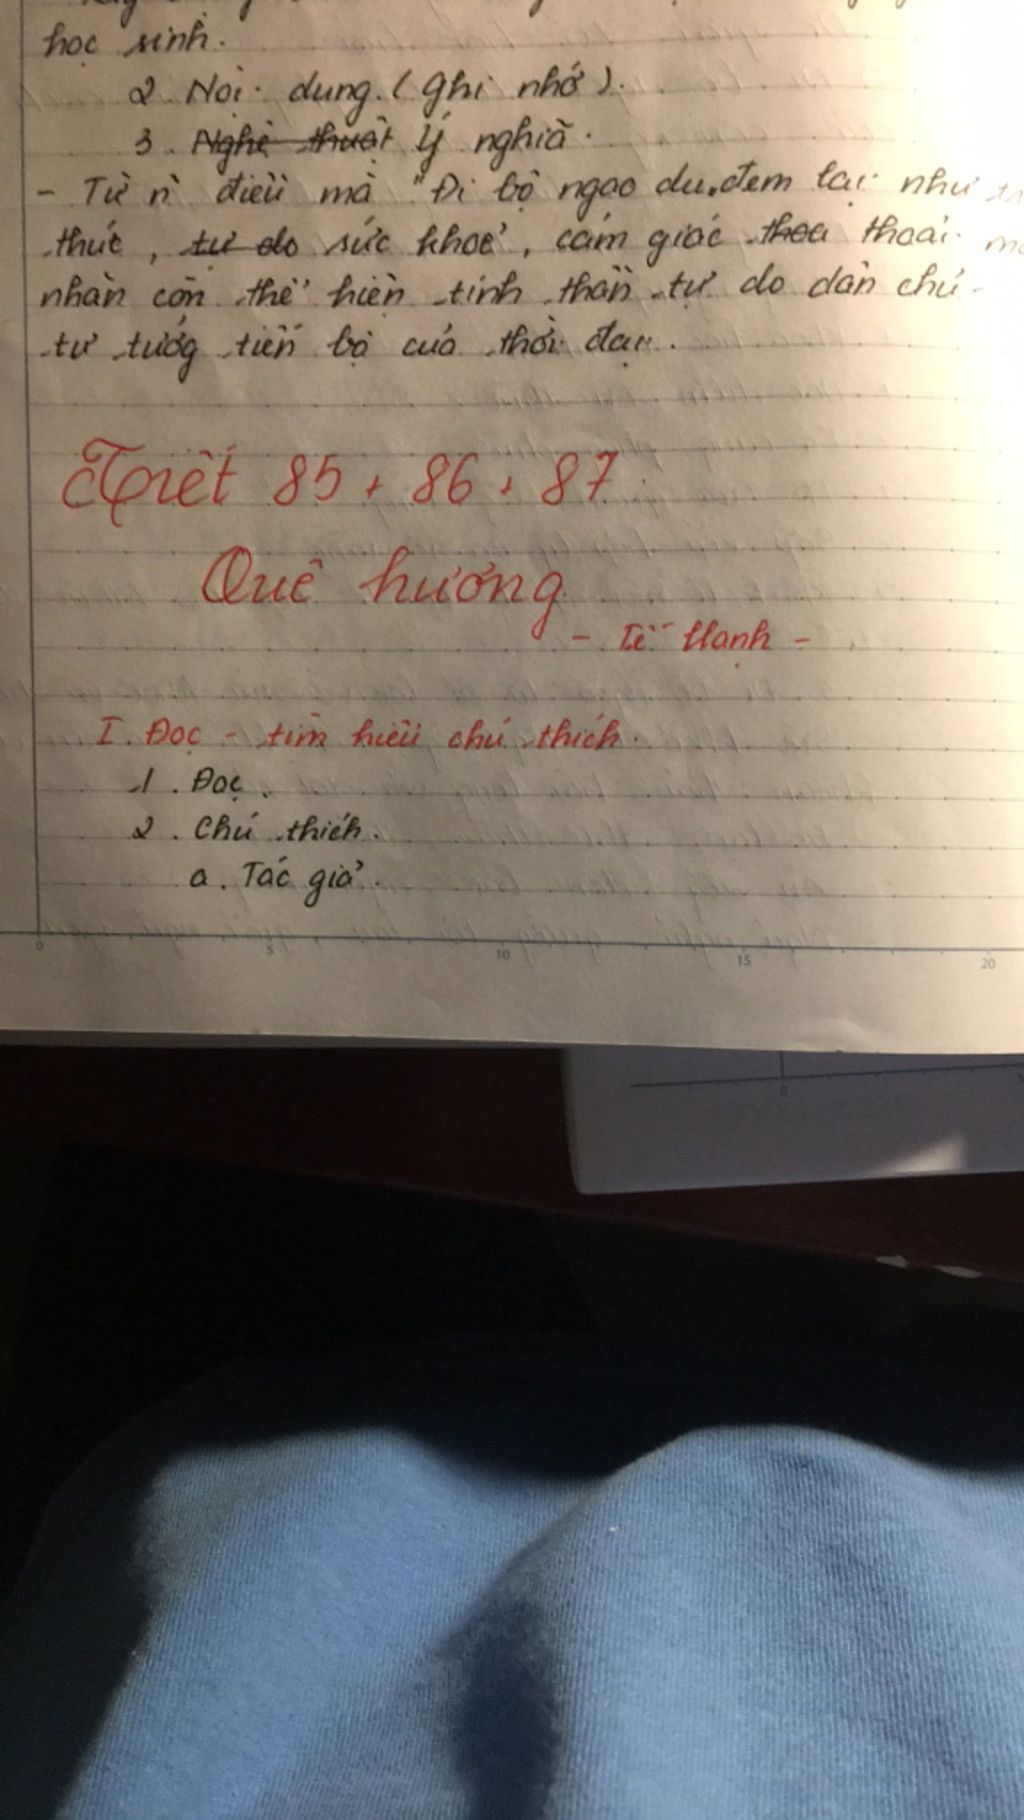 học sinh.
2. Nội dung. (Ghi nhớ).
3. Nghệ thuật Ý nghĩa.
- Từ n điều mà "Đi bộ ngao du" đem lại như
thức, tự do sức khoẻ, cảm giác thoa thoải
nhân còn thể hiện tinh thần tự do dân chủ -
tư tưởg tiến bộ của thời đại.
Tiết 85 + 86 + 87
Quê hương
- Tế Hanh -
I. Đọc - tìm hiểu chú thích.
1. Đọc.
2. Chú thích.
a. Tác giả.
0 5 10 15 20
0